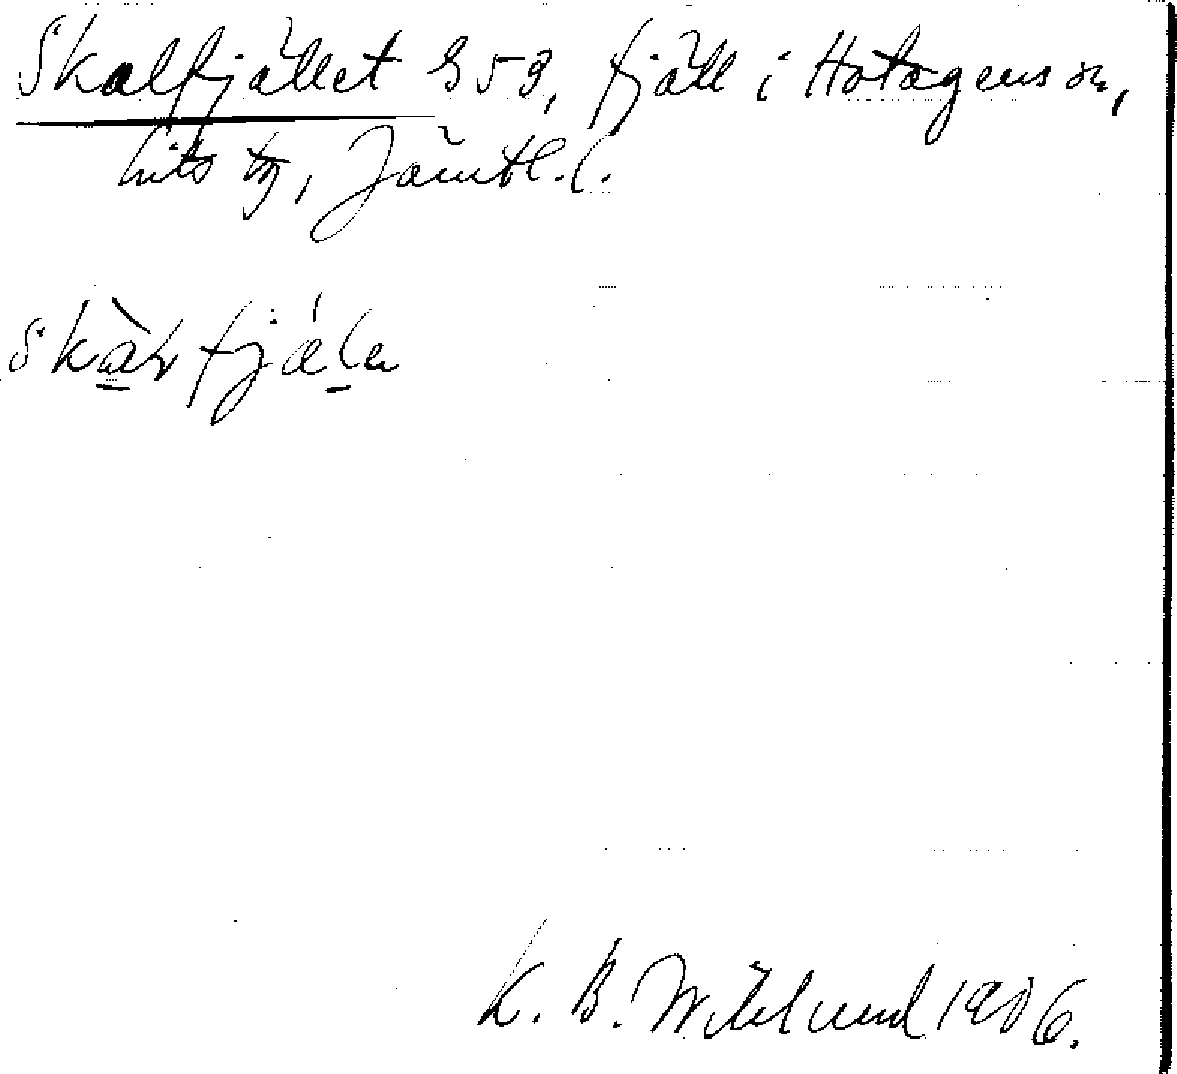 Skalfjället G 53, fjäll i Hotagens sn,
Lits tg, Jämtl. l.
skàlfjælo
K. B. Wiklund 1906.